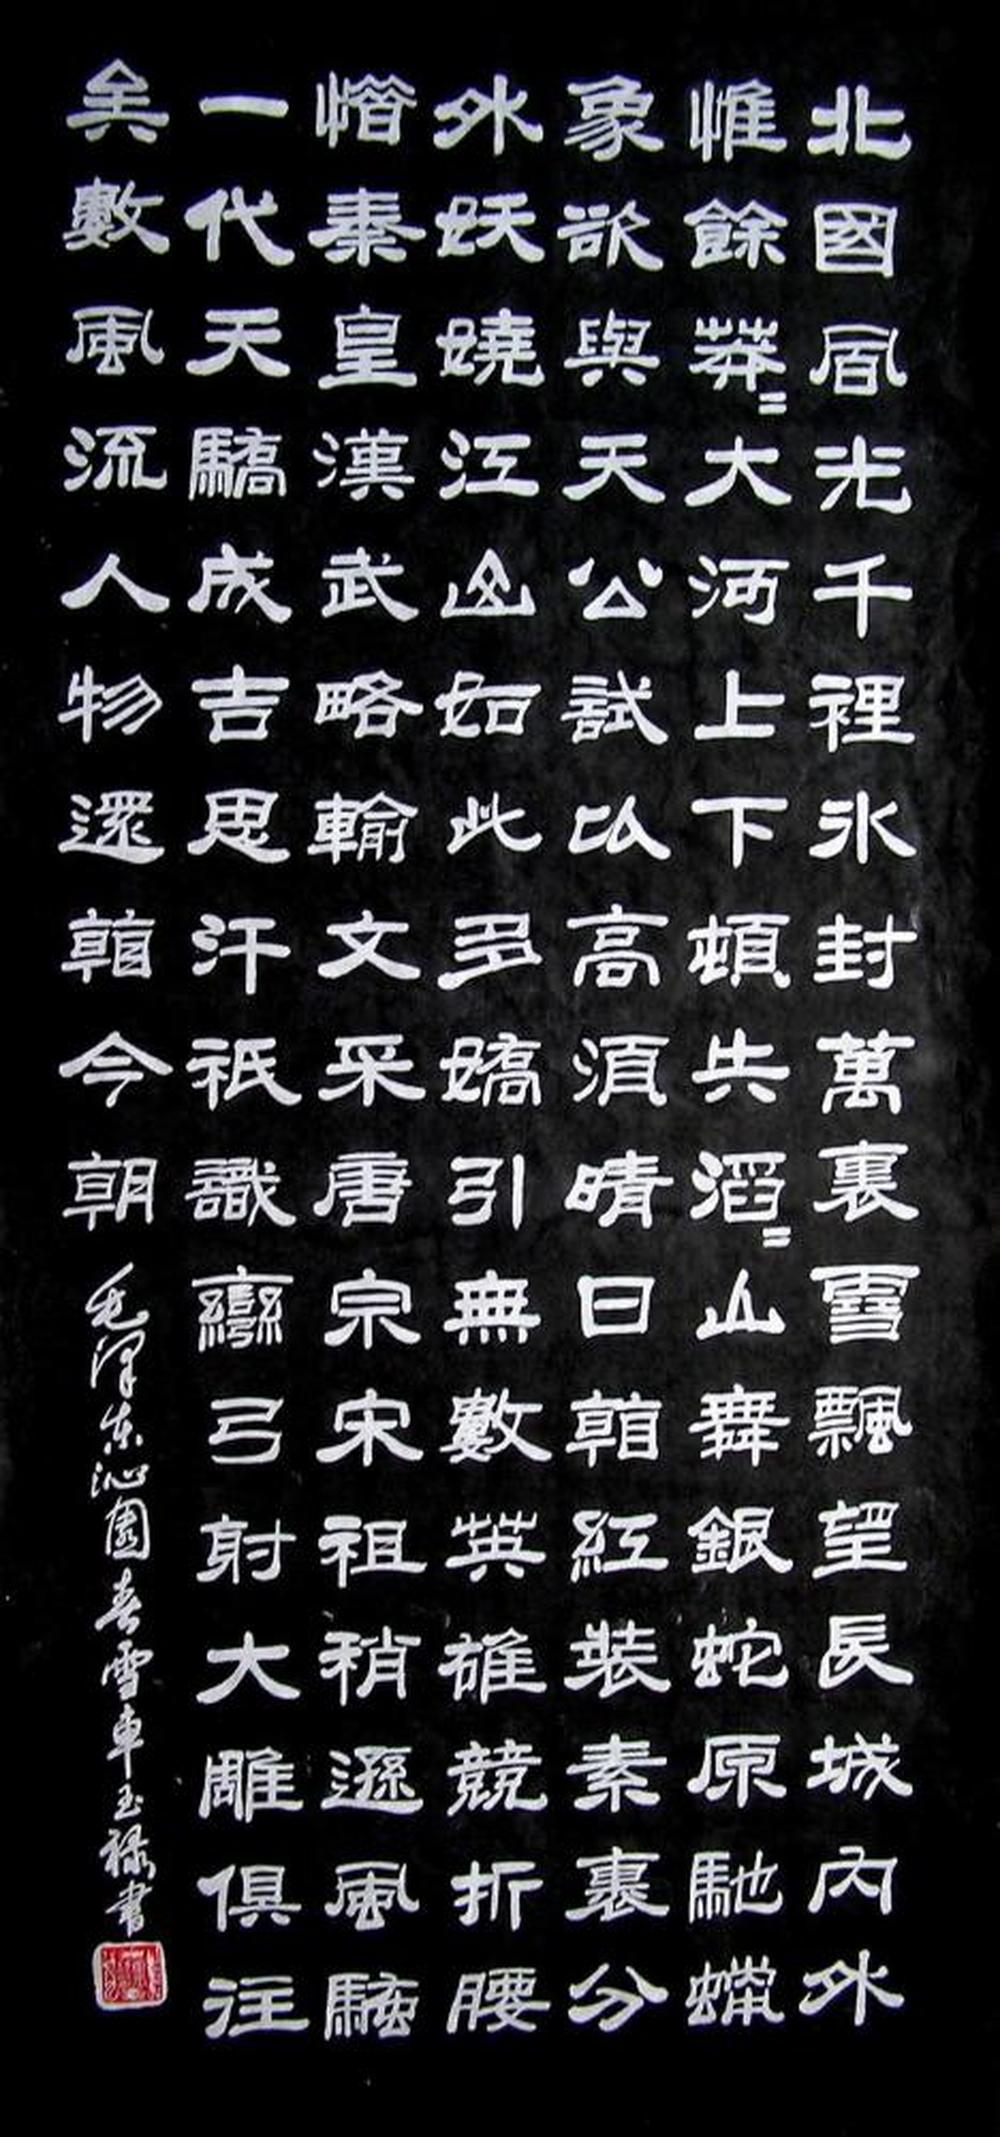 北國風光千裡冰封萬裏雪飄望長城內外
惟餘莽〓大河上下頓失滔〓山舞銀蛇原馳蠟
象欲與天公試以高須晴日看紅裝素裹分
外妖嬈江山如此多嬌引無數英雄競折腰
惜秦皇漢武略輸文采唐宗宋祖稍遜風騷
一代天驕成吉思汗祇識彎弓射大雕俱往
矣數風流人物還看今朝 毛澤東沁園春雪車玉祿書